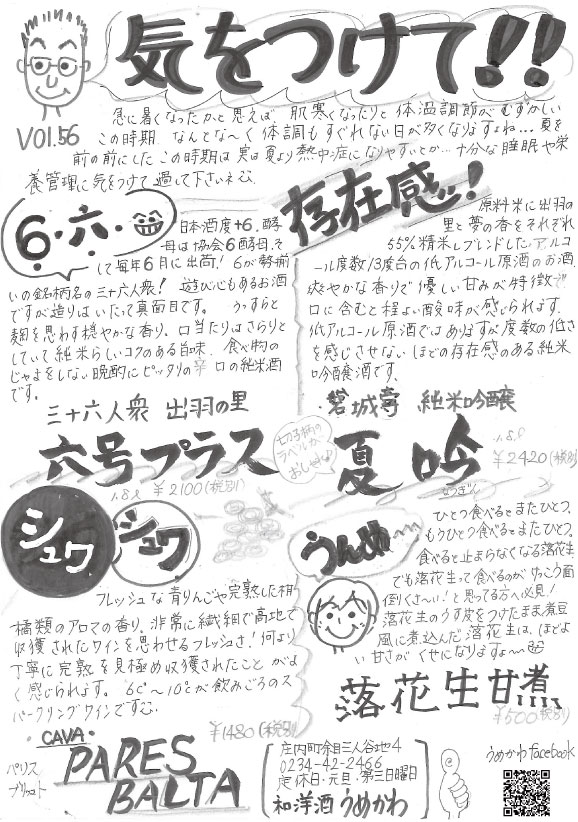 気をつけて!!
VOL.56
急に暑くなったかと思えば 肌寒くなったりと 体温調節がむずかしい
この時期、なんとな〜く体調もすぐれない日が多くなりますよね…夏を
前の前にしたこの時期は実は夏より熱中症になりやすいとか…十分な睡眠や栄
養管理に気をつけて過して下さいネ
6・六・
日本酒度+6.酵
母は協会6酵母.そ
して毎年6月に出荷! 6が勢揃
いの銘柄名の三十六人衆! 遊び心もあるお酒
ですが造りはいたって真面目です。 うっすらと
麹を思わす穏やかな香り、口当たりはさらりと
していて純米らしいコクのある旨味、食べ物の
じゃまをしない晩酌にピッタリの辛口の純米酒
です。
三十六人衆 出羽の里
六号プラス
1.8ℓ ¥2100(税別)
存在感!
原料米に出羽の
里と夢の香をそれぞれ
55%精米しブレンドした.アルコ
ール度数13度台の低アルコール原酒のお酒
爽やかな香りで優しい甘みが特徴で
口に含むと程よい酸味が感じられます.
低アルコール原酒ではありますが度数の低さ
を感じさせないほどの存在感のある純米
吟醸酒です.
磐城壽 純米吟醸
切子柄の
ラベルが
おしゃれ
夏吟
なつぎん
1.8ℓ
¥2420(税別)
シュワ
シュワ
フレッシュな青りんごや完熟した柑
橘類のアロマの香り、非常に繊細で高地で
収獲されたワインを思わせるフレッシュさ!何より
丁寧に完熟を見極め収獲されたことがよ
く感じられます。 6℃〜10℃が飲みごろのス
パークリングワインです
¥1480(税別)
・CAVA・
パリス
バルタ
PARES
BALTA
うんめ〜
ひとつ食べるとまたひとつ、
もうひとつ食べるとまたひとつ。
食べると止まらなくなる落花生
でも落花生って食べるのがけっこう面
倒くさ〜い!と思ってる方へ必見!
落花生のうす皮をつけたまま煮豆
風に煮込んだ落花生は、ほどよ
い甘さがくせになりますよ〜
落花生甘煮
¥500(税別)
庄内町余目三人谷地4
0234-42-2466
定休日・元旦・第三日曜日
和洋酒うめかわ
うめかわfacebook